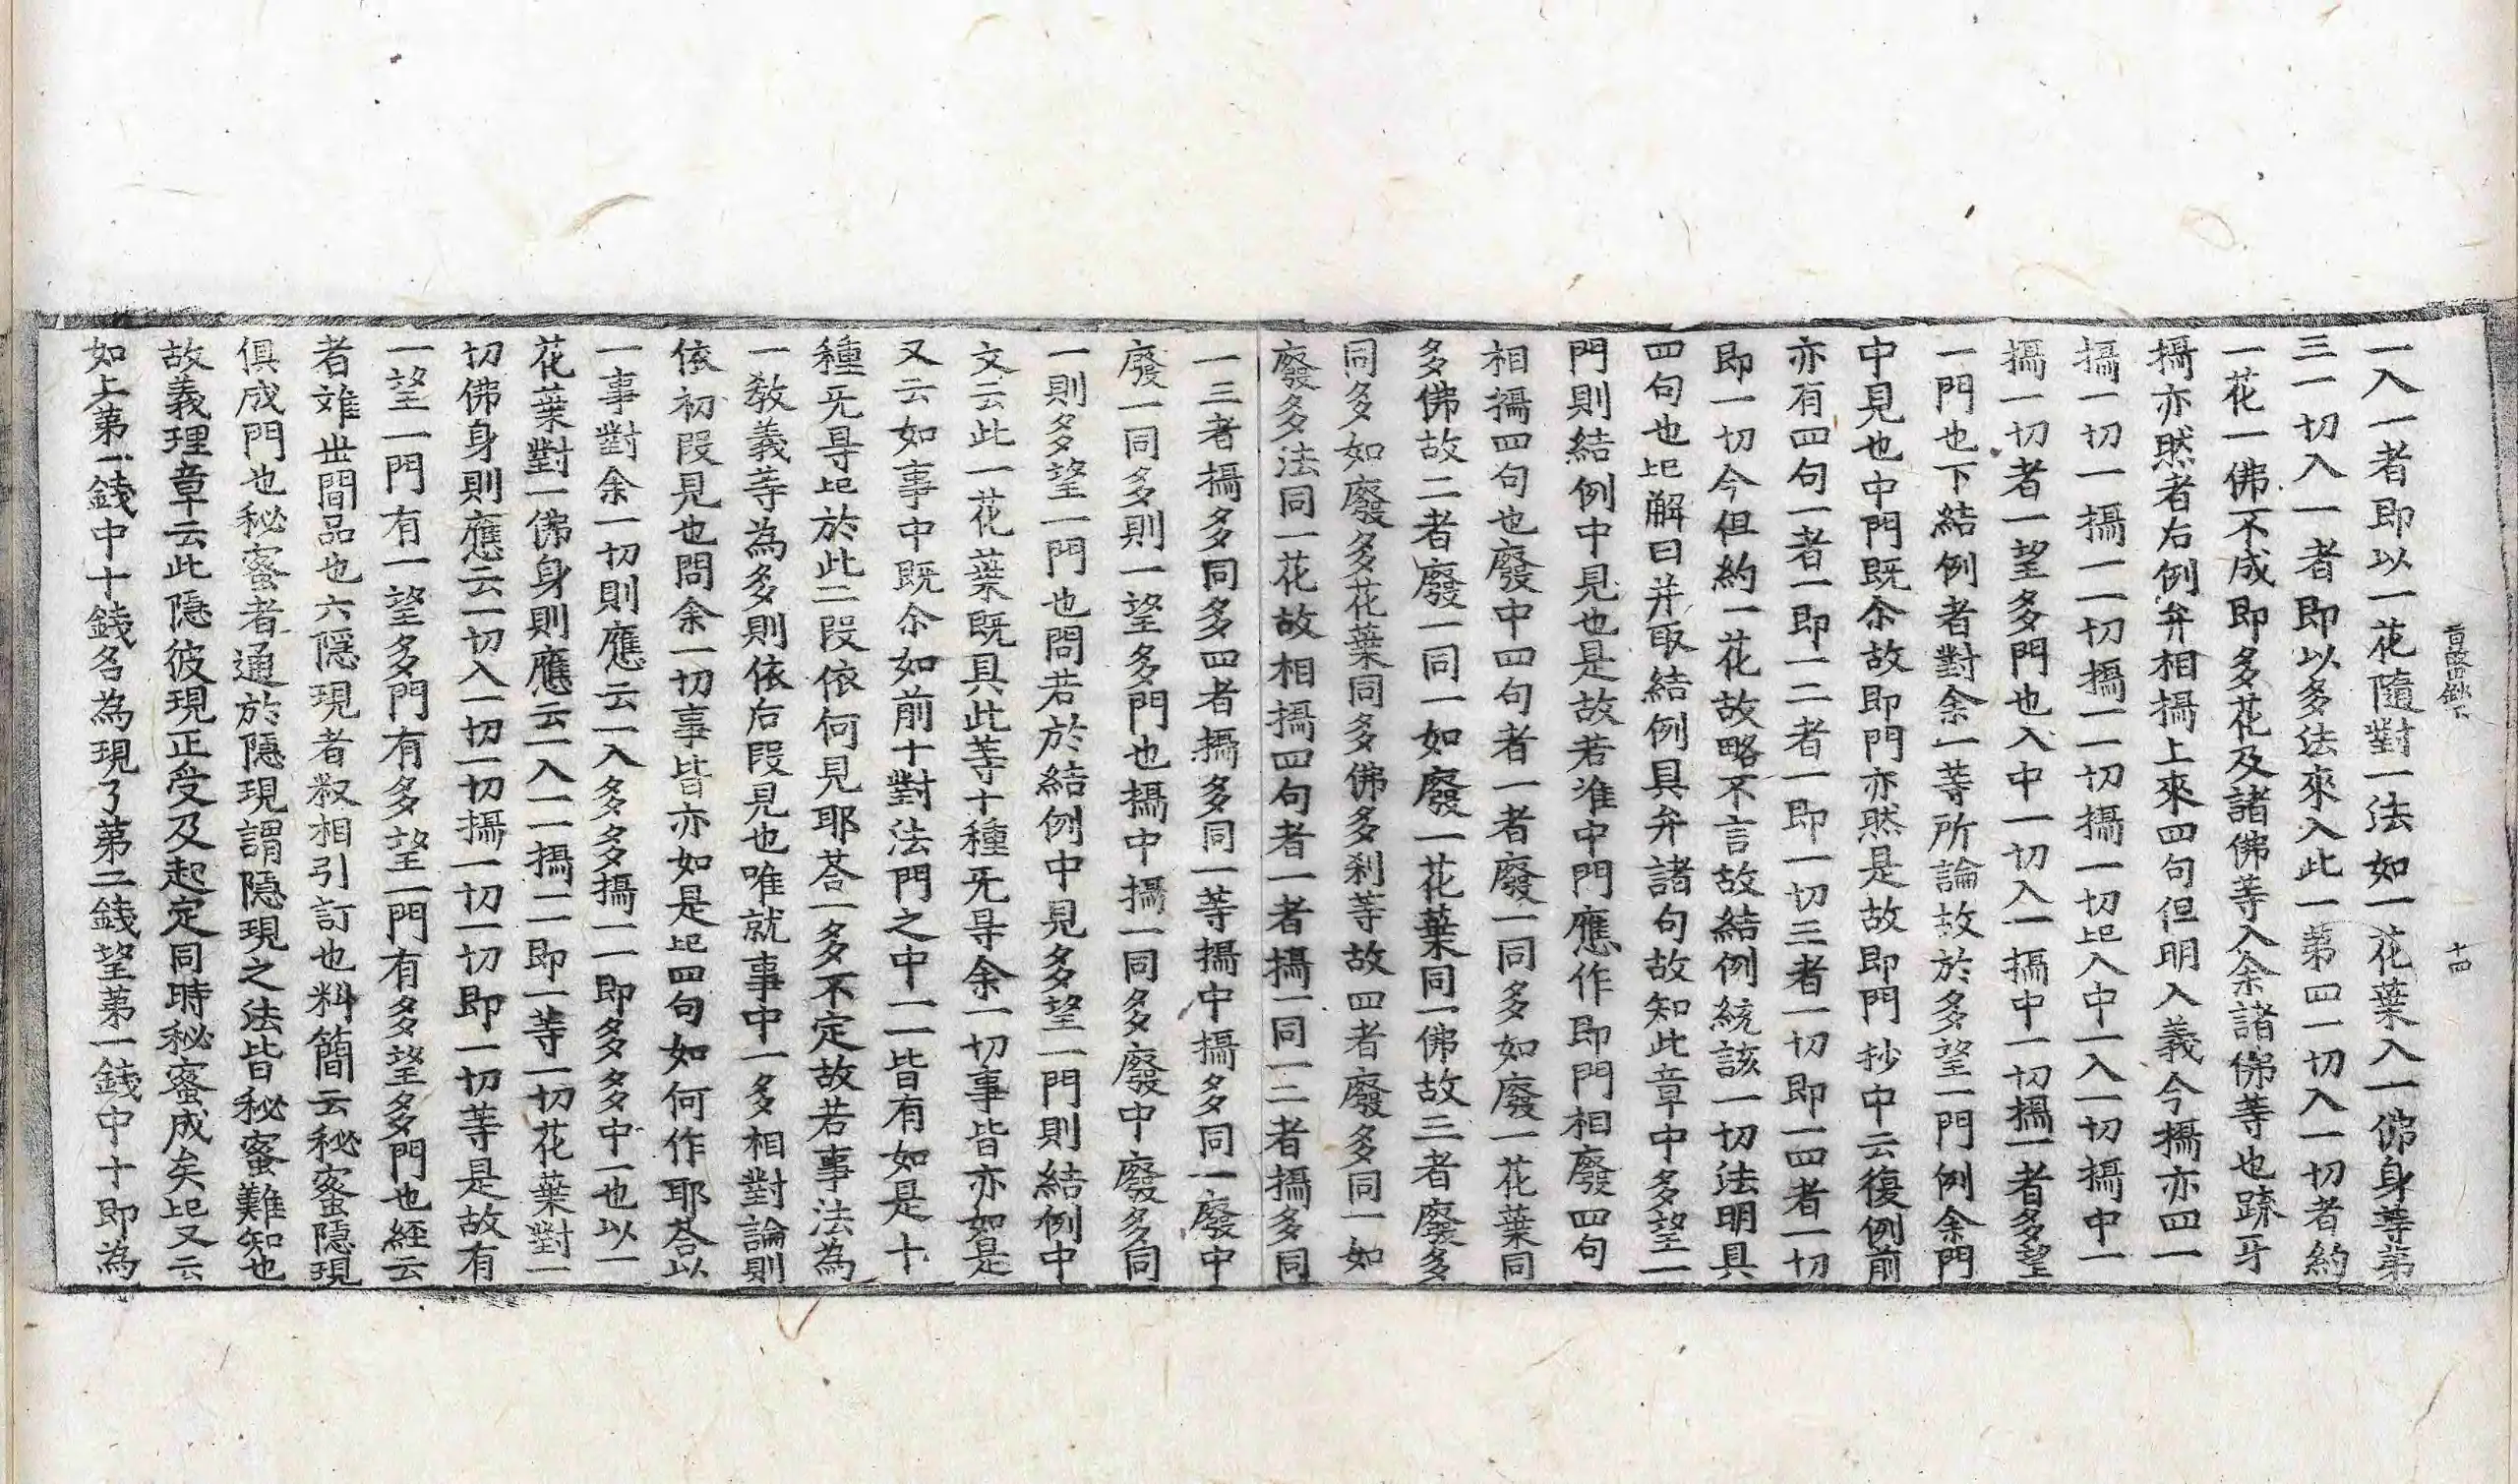 一入一者即以一花隨對一法如一花葉入一佛身等第
三一切入一者即以多法來入此一第四一切入一切者約
一花一佛不成即多花及諸佛等入余諸佛等也䟽牙
攝亦然者右例弁相攝上來四句但明入義今攝亦四一
攝一切一攝一二切攝一一切攝一切記入中一入一切攝中一
攝一切者一望多門也入中一切入一攝中一切攝一者多望
一門也下結例者對余一等所論故於多望一門例余門
中見也中門既尒故即門亦然是故即門抄中云復例前
亦有四句一者一即一二者一即一切三者一切即一四者一切
即一切今但約一花故略不言故結例統該一切法明具
四句也記解曰并取結例具弁諸句故知此章中多望一
門則結例中見也是故若准中門應作即門相廢四句
相攝四句也廢中四句者一者廢一同多如廢一花葉同
多佛故二者廢一同一如廢一花葉同一佛故三者廢多
同多如廢多花葉同多佛多刹等故四者廢多同一如
廢多法同一花故相攝四句者一者攝一同一二者攝多同
一三者攝多同多四者攝多同一等攝中攝多同一廢中
廢一同多則一望多門也攝中攝一同多廢中廢多同
一則多望一門也問若於結例中見多望一門則結例中
文云此一花葉既具此等十種旡㝵余一切事皆亦如是
又云如事中既尒如前十對法門之中一一皆有如是十
種旡㝵記於此二段依何見耶荅一多不定故若事法為
一教義等為多則依右段見也唯就事中一多相對論則
依初段見也問余一切事皆亦如是記四句如何作耶荅以
一事對余一切則應云一入多多攝一一即多多中一也以一
花葉對一佛身則應云一入一一攝一一即一等一切花葉對一
切佛身則應云一切入一切一切攝一切一切即一切等是故有
一望一門有一望多門有多望一門有多望多門也經云
者雖世間品也六隱現者叙相引訂也料簡云秘蜜隱現
俱成門也秘蜜者通於隱現謂隱現之法皆秘蜜難知也
故義理章云此隱彼現正受及起定同時秘蜜成矣記又云
如上第一錢中十錢名為現了第二錢望第一錢中十即為
十四